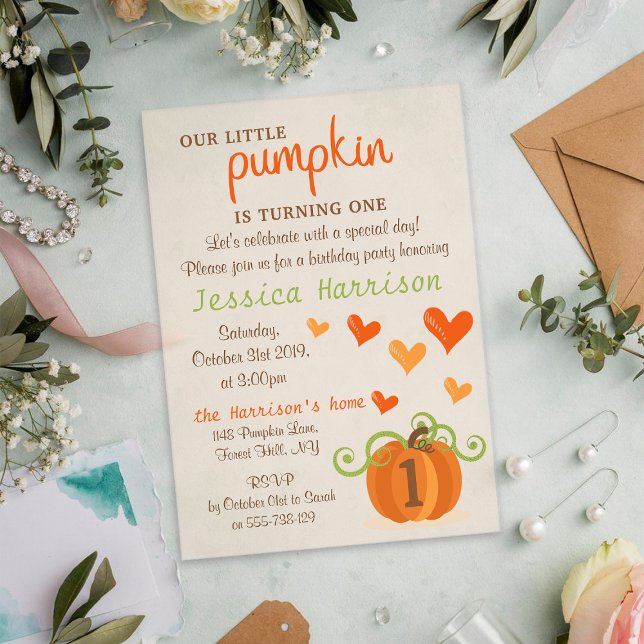 OUR LITTLE
pumpkin
IS TURNING ONE
Let's celebrate with a special day!
Please join us for a birthday party honoring
Jessica Harrison
Saturday,
October 31st 2019,
at 3:00pm
the Harrison's home
1148 Pumpkin Lane,
Forest Hill, NY
RSVP
by October 01st to Sarah
on 555-738-129
1